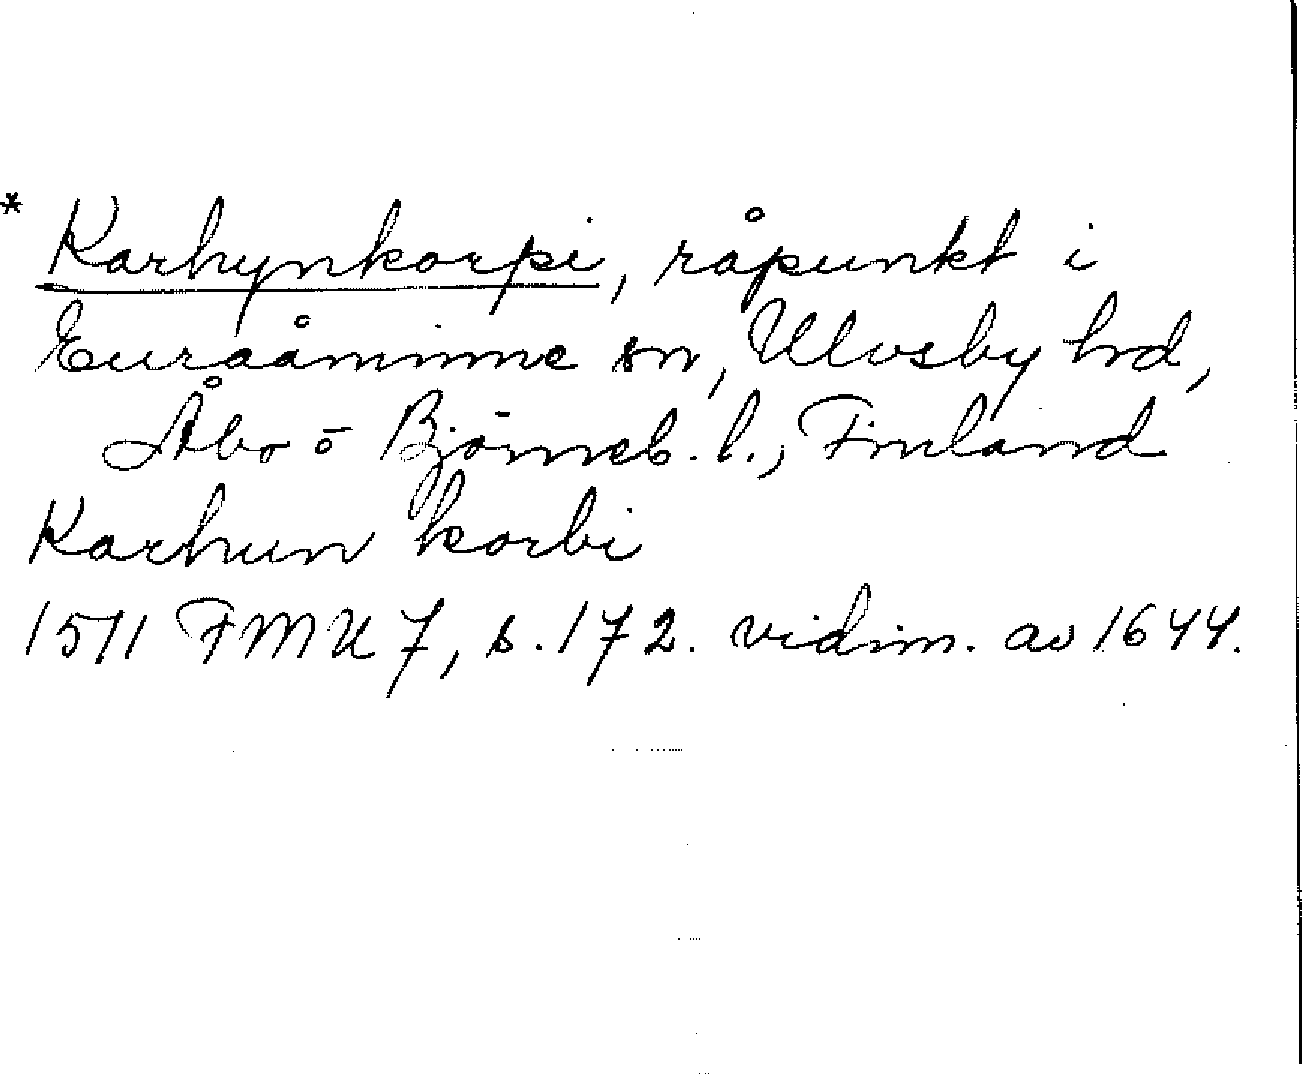 * Karhynkorpi, råpunkt i
Euraåminne sn, Ulvsby hd,
Åbo o Björneb. l., Finland
Karhun korbi
1511 FMU 7, s. 172. vidim. av 1644.